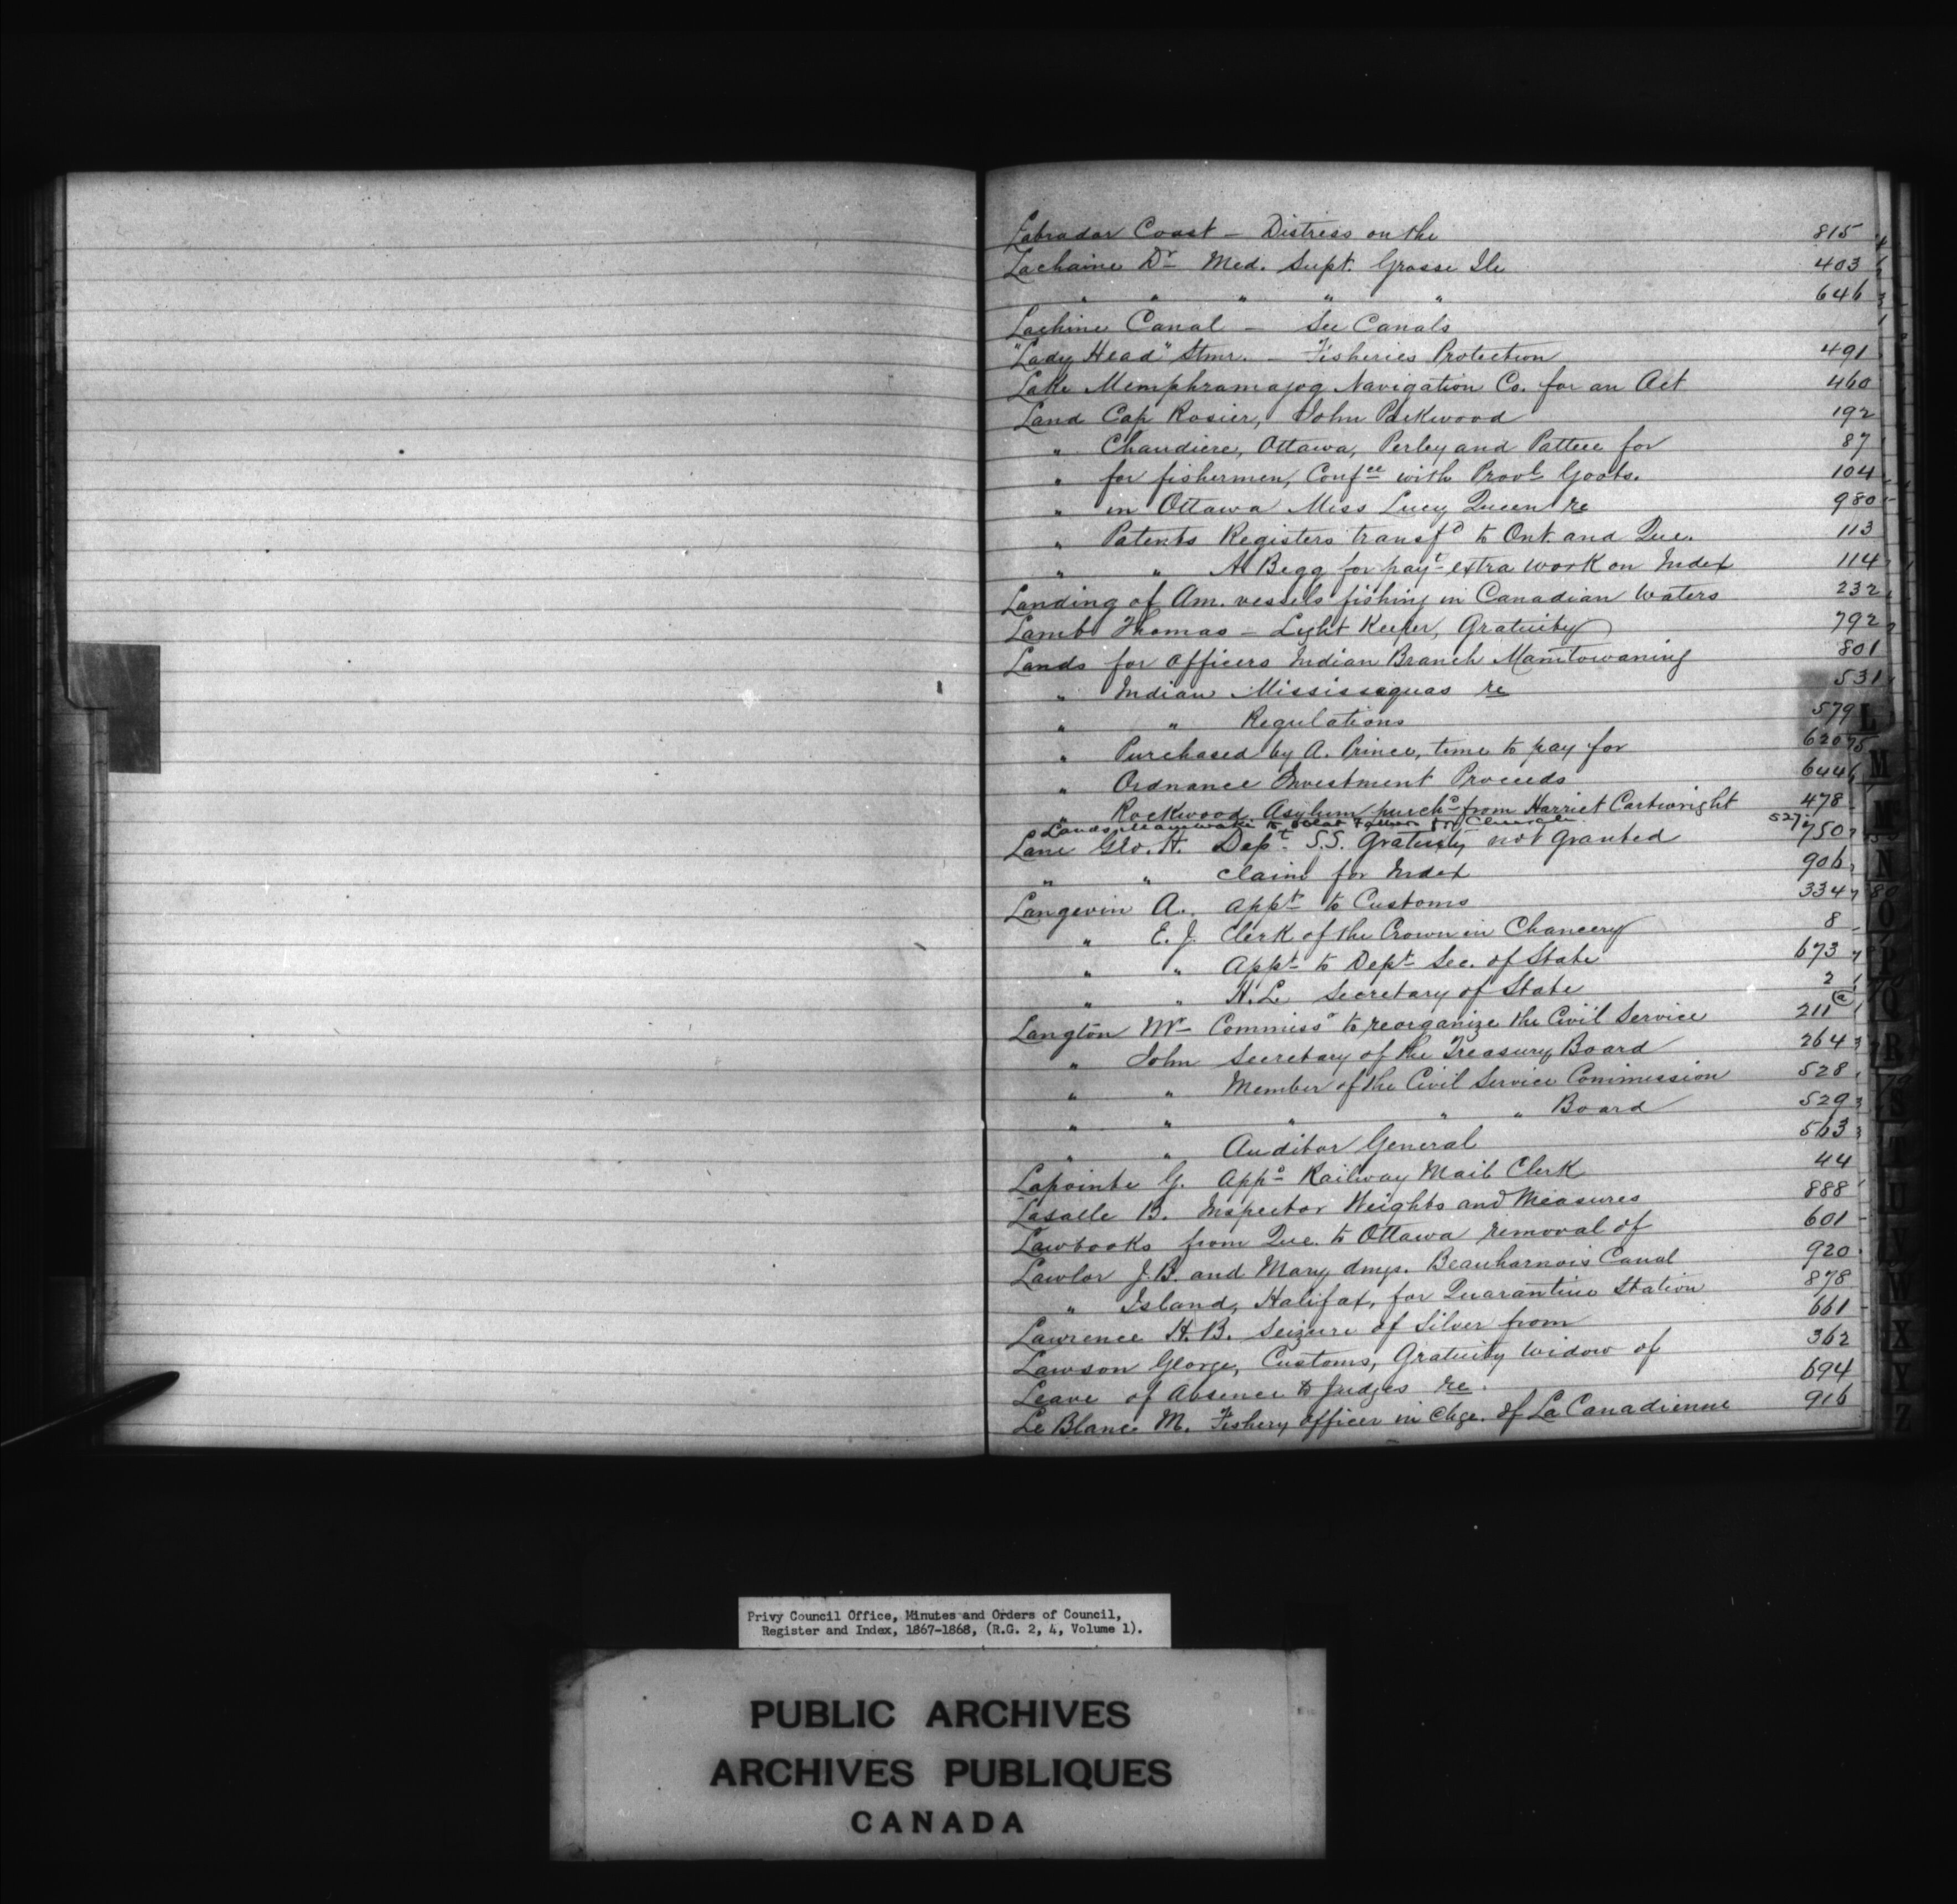 Labrador Coast — Distress on the 815
Lachaine Dr Med. Supt. Grosse Ile 403
" " " " " 646
Lachine Canal — See Canals
"Lady Head" Stmr. — Fisheries Protection 491
Lake Memphramagog Navigation Co. for an Act 460
Land Cap Rosier, John Packwood 192
" Chaudiere, Ottawa, Perley and Pattee for 87
" for fishermen, Confce with Provl Govts. 104
" in Ottawa Miss Lucy Queen re 980
" Patents Registers transfd to Ont. and Que. 113
" " A Begg for payt extra work on Index 114
Landing of Am. vessels fishing in Canadian Waters 232
Lamb Thomas — Light Keeper, Gratuity 792
Lands for Officers Indian Branch Manitowaning 801
" Indian Mississaguas re 531
" " Regulations 579
" Purchased by A. Prince, time to pay for 620
" Ordnance Investment Proceeds 644
" Rockwood Asylum purchd from Harriet Cartwright 478
Lands to for Church 527
Lane Geo. H. Dept S.S. Gratuity not granted 750
" " Claim for Index 906
Langevin A. appt to Customs 334
" E. J. Clerk of the Crown in Chancery 8
" " Appt to Dept Sec. of State 673
" " H.L. Secretary of State 2
Langton Mr Commissr to reorganize the Civil Service 211 a
" John Secretary of the Treasury Board 264
" " Member of the Civil Service Commission 528
" " " " " Board 529
" " Auditor General 563
Lapointe G. Appd Railway Mail Clerk 44
Lasalle B. Inspector Weights and Measures 888
Lawbooks from Que. to Ottawa removal of 601
Lawlor J. B. and Mary dmgs. Beauharnois Canal 920
" Island, Halifax, for Quarantine Station 878
Lawrence H. B. Seizure of Silver from 661
Lawson George, Customs, Gratuity Widow of 362
Leave of Absence to Judges re. 694
Le Blanc M. Fishery officer in Chge. of La Canadienne 916
L
M
N
O
Q
R
S
T
U
W
X
Y
Z
Privy Council Office, Minutes and Orders of Council,
Register and Index, 1867-1868, (R.G. 2, 4, Volume 1).
PUBLIC ARCHIVES
ARCHIVES PUBLIQUES
CANADA